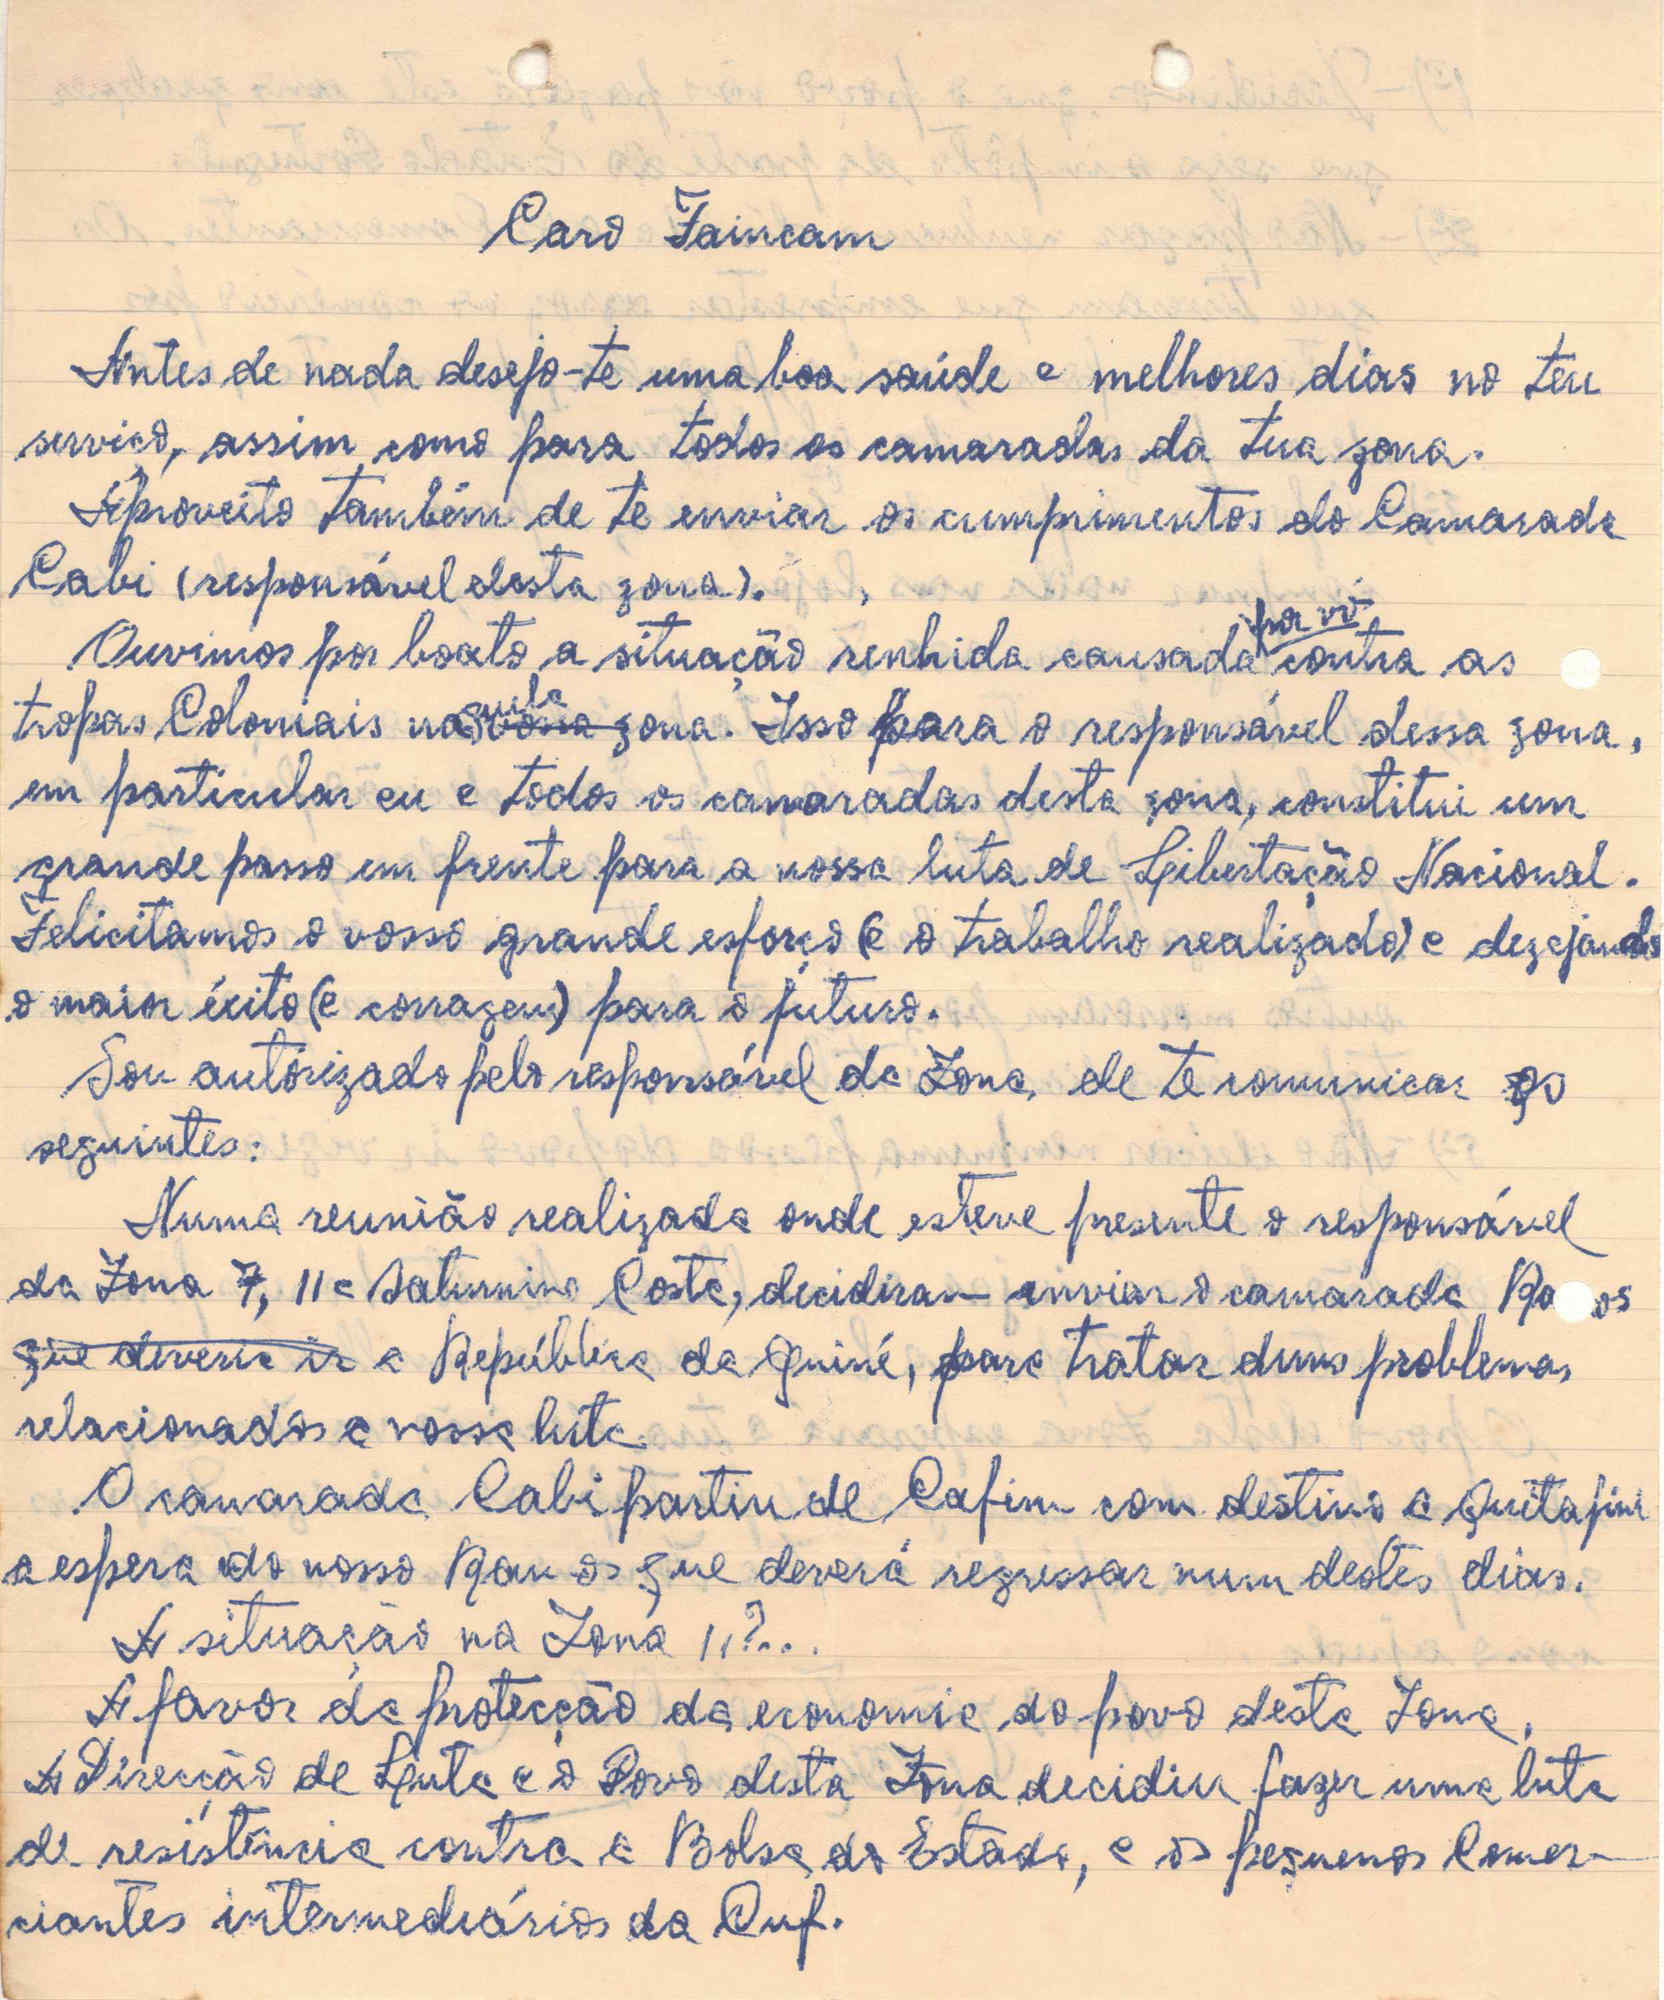 Caro Faincam
Antes de nada desejo-te uma boa saúde e melhores dias no teu
serviço, assim como para todos os camaradas da tua zona.
Aproveito também de te enviar os cumprimentos do Camarada
Cabi (responsável desta zona).
Ouvimos por boato a situação renhida causada por vó contra as
tropas Coloniais na vossa zona. Isso para o responsável dessa zona,
em particular eu e todos os camaradas desta zona, constitui um
grande passo em frente para a nossa luta de Libertação Nacional.
Felicitamos o vosso grande esforço (e o trabalho realizado) e dezejando
o maior éxito (e corragem) para o futuro.
Sou autorizado pelo responsável da Zona, de te comunicar os
seguintes:
Numa reunião realizada onde esteve presente o responsável
da Zona 7, 11 e Saturnino Costa, decidiram enviar o camarada
que deveria ir a República da Guiné, para tratar duns problemas
relacionados a nossa luta
O camarada Cabi partiu de Cafim com destino a Quitafine
a espera do nosso Ramos que deverá regressar num destes dias.
A situação na Zona 11?...
A favor da protecção da economia do povo desta Zona,
A Direcção de Luta e o Povo desta Zona decidiu fazer uma luta
de resistência contra a Bolsa do Estado, e os pequenos Comer-
ciantes intermediários da Cuf.